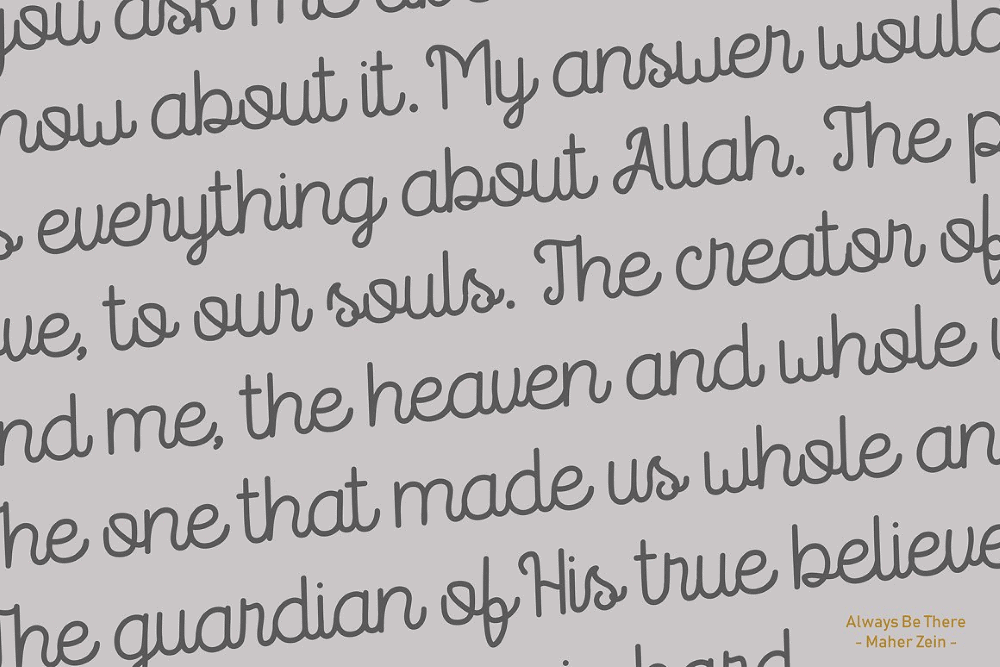 you ask me
now about it. My answer would
everything about Allah. The
to our souls. The creator of
nd me, the heaven and whole
he one that made us whole an
The guardian of His true believe
hard
Always Be There
- Maher Zein -